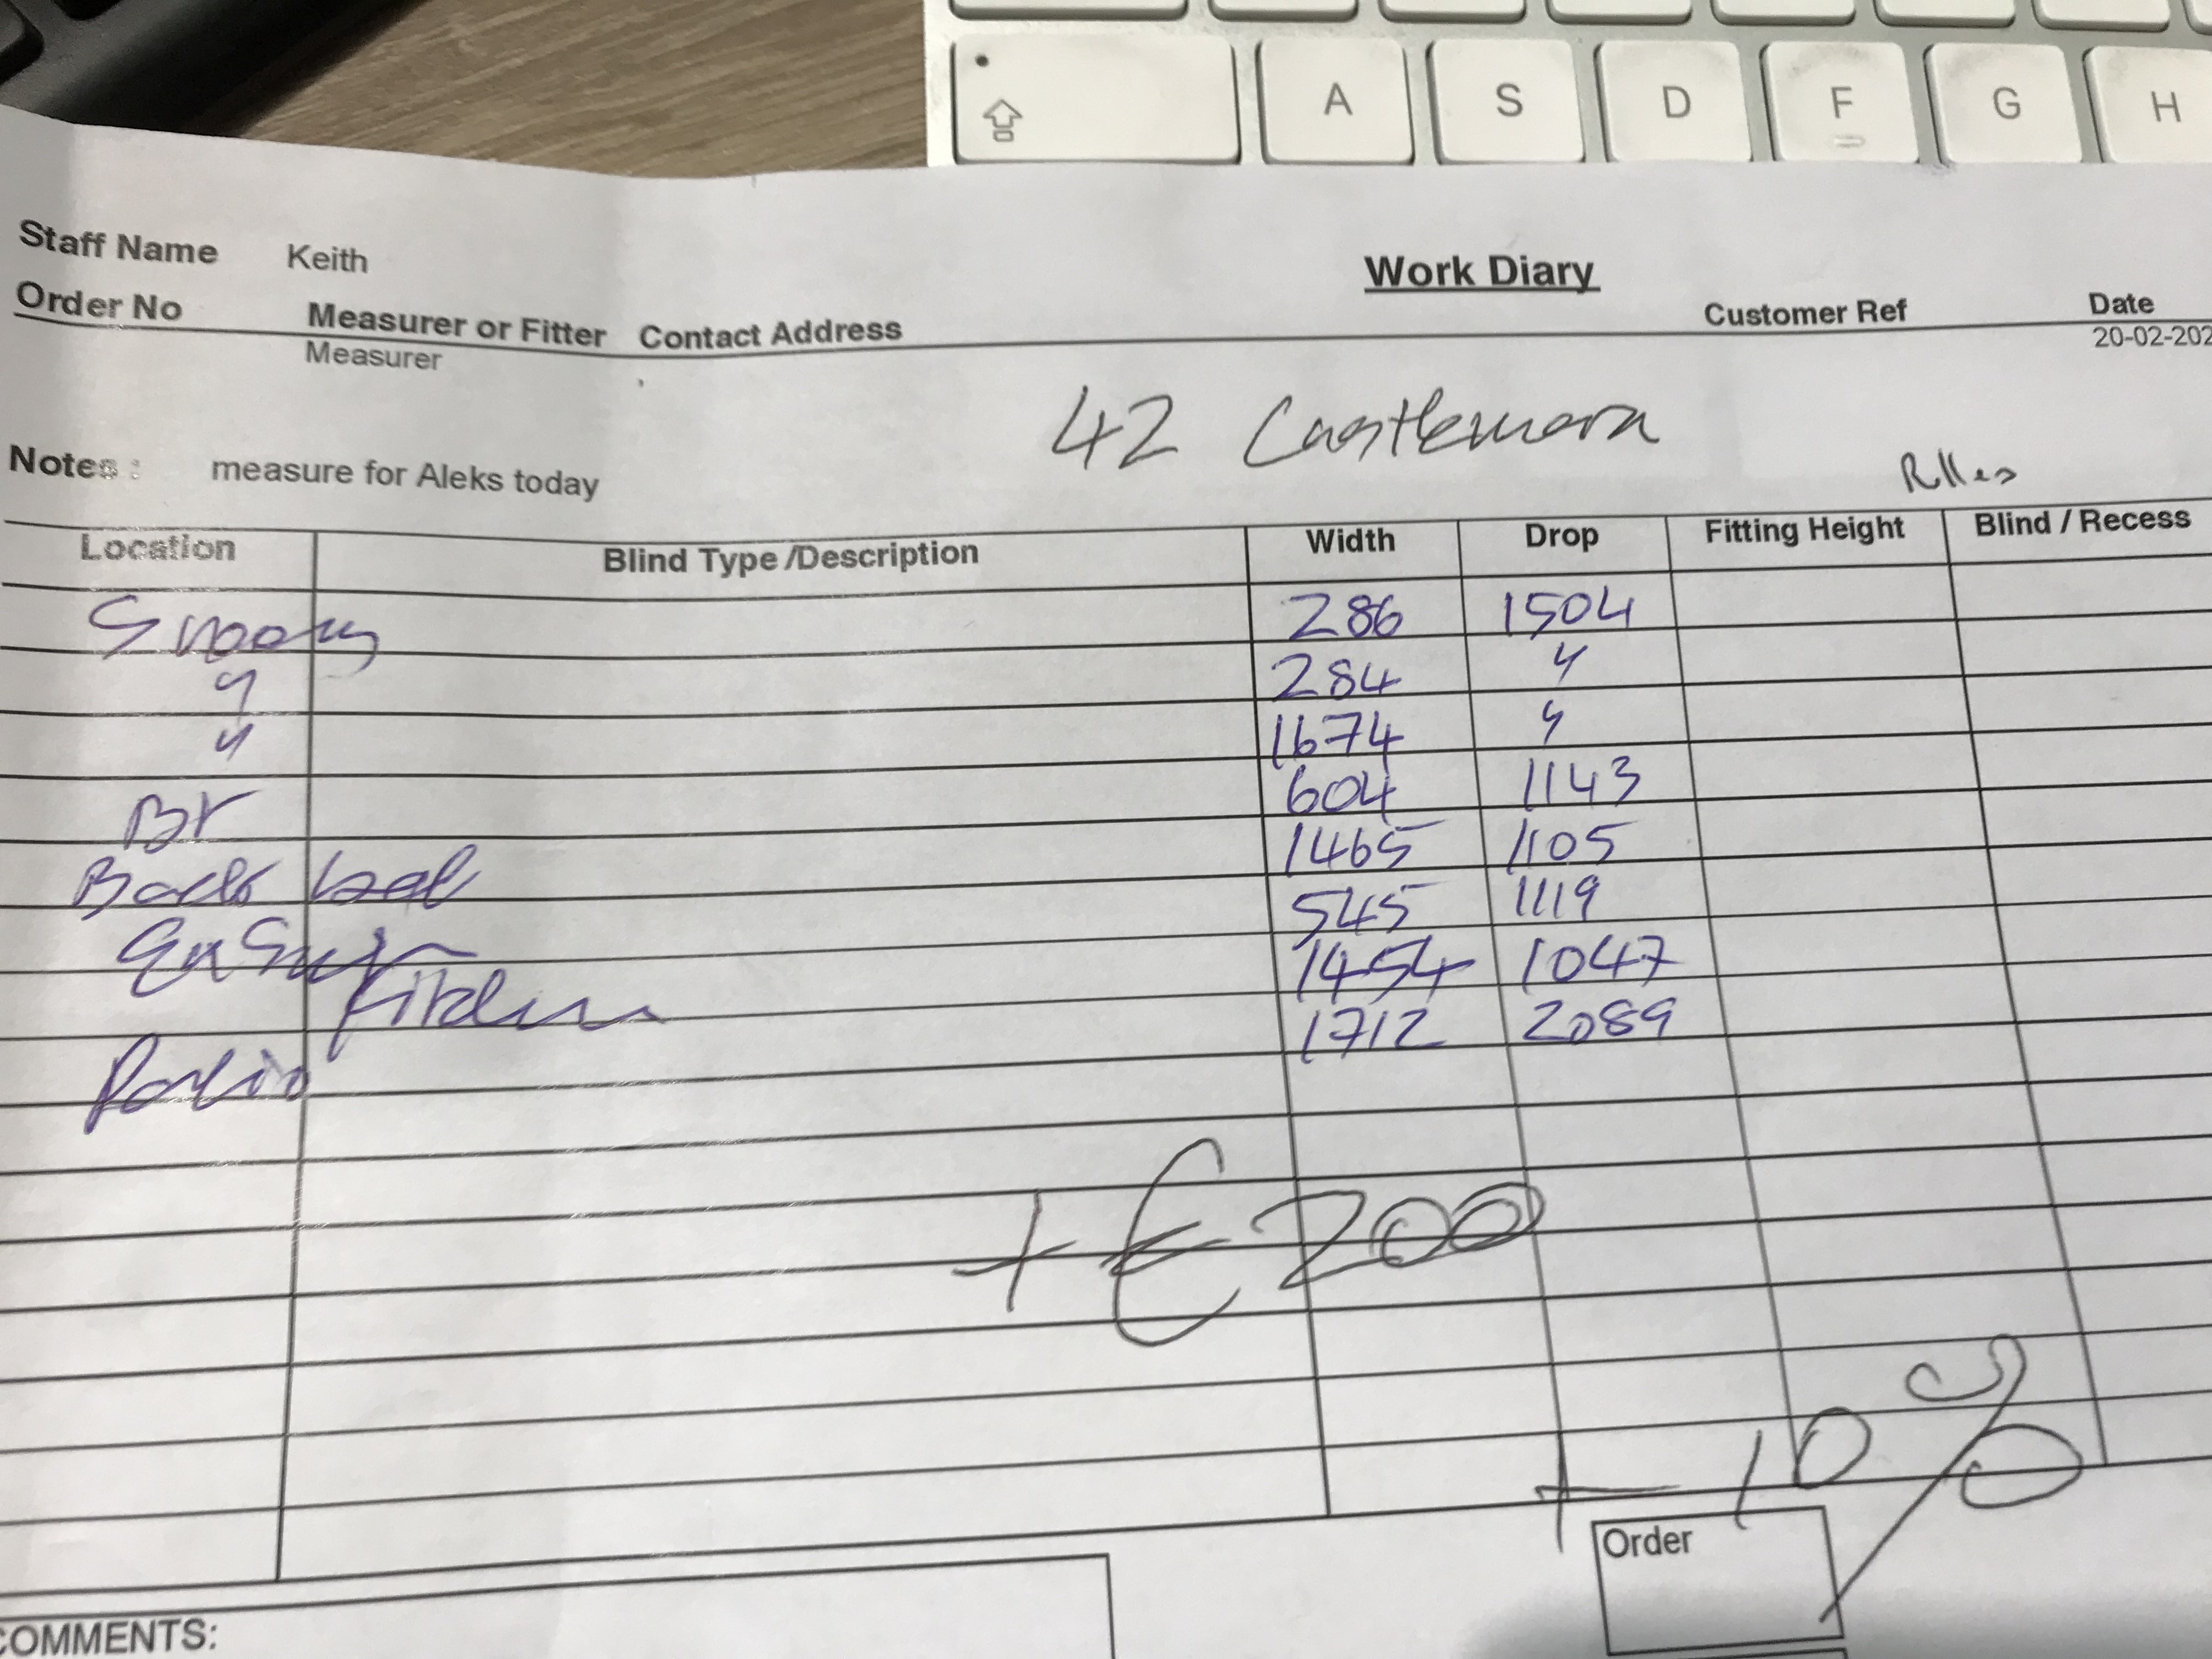 A S D F G H
Staff Name Keith
Work Diary
Order No Measurer or Fitter Contact Address Customer Ref Date
Measurer 20-02-202
42 Castlemora
Notes : measure for Aleks today
Location Blind Type /Description Width Drop Fitting Height Blind / Recess
286 1504
" 284 "
" 1674 "
Br 604 1143
Back bed 1465 1105
EnSuite 545 1119
Kitchen 1454 1047
Patio 1712 2089
+ €200
+ 10%
Order
COMMENTS: